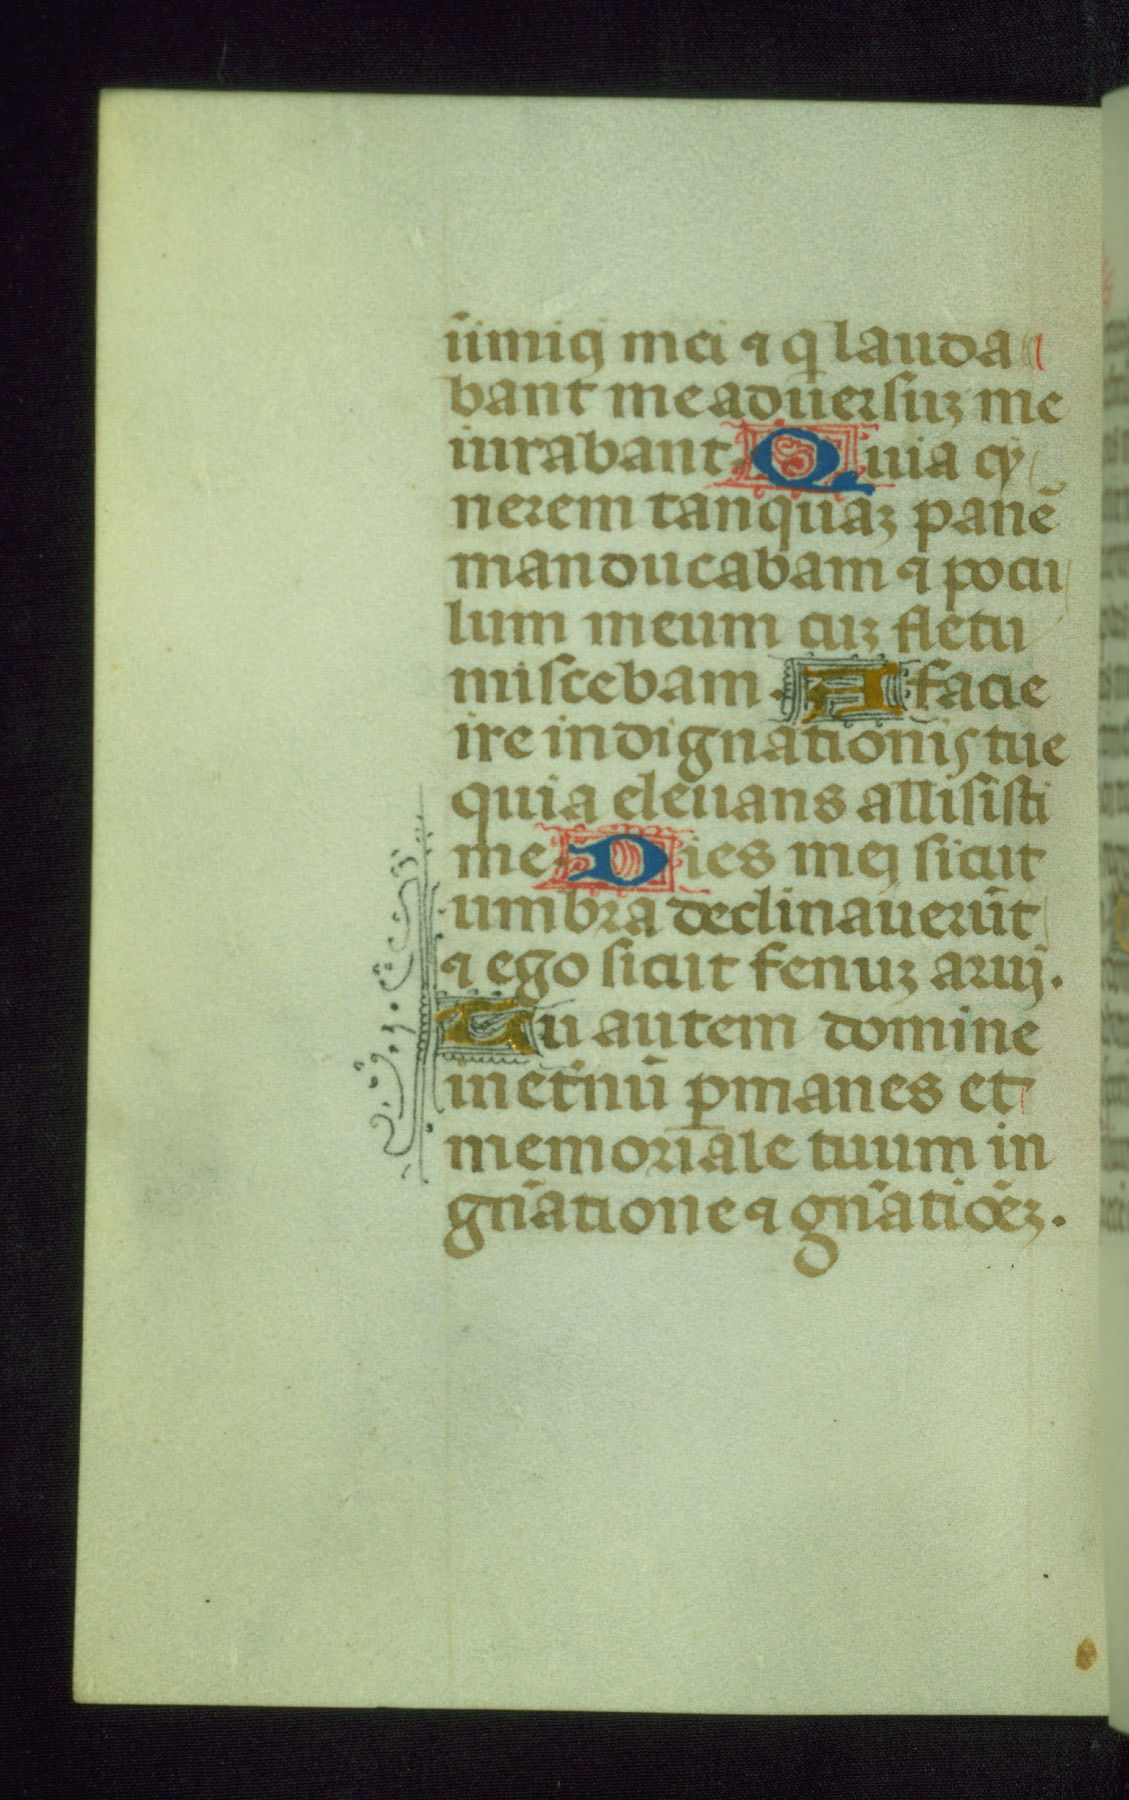 ĩimicj mei ⁊ q lauda
bant me aduersuꝫ me
iurabant. Quia cy
nerem tanquaꝫ panē
manducabam ⁊ pocu
lum meum cuꝫ fletu
miscebam. A facie
ire indignationis tue
quia eleuans allisisti
me. Dies mej sicut
umbra declinauerūt
⁊ ego sicut fenuꝫ aruj.
Tu autem domine
in et̃nũ ꝑmanes et
memoriale tuum in
gñatione ⁊ gñatiõeꝫ.